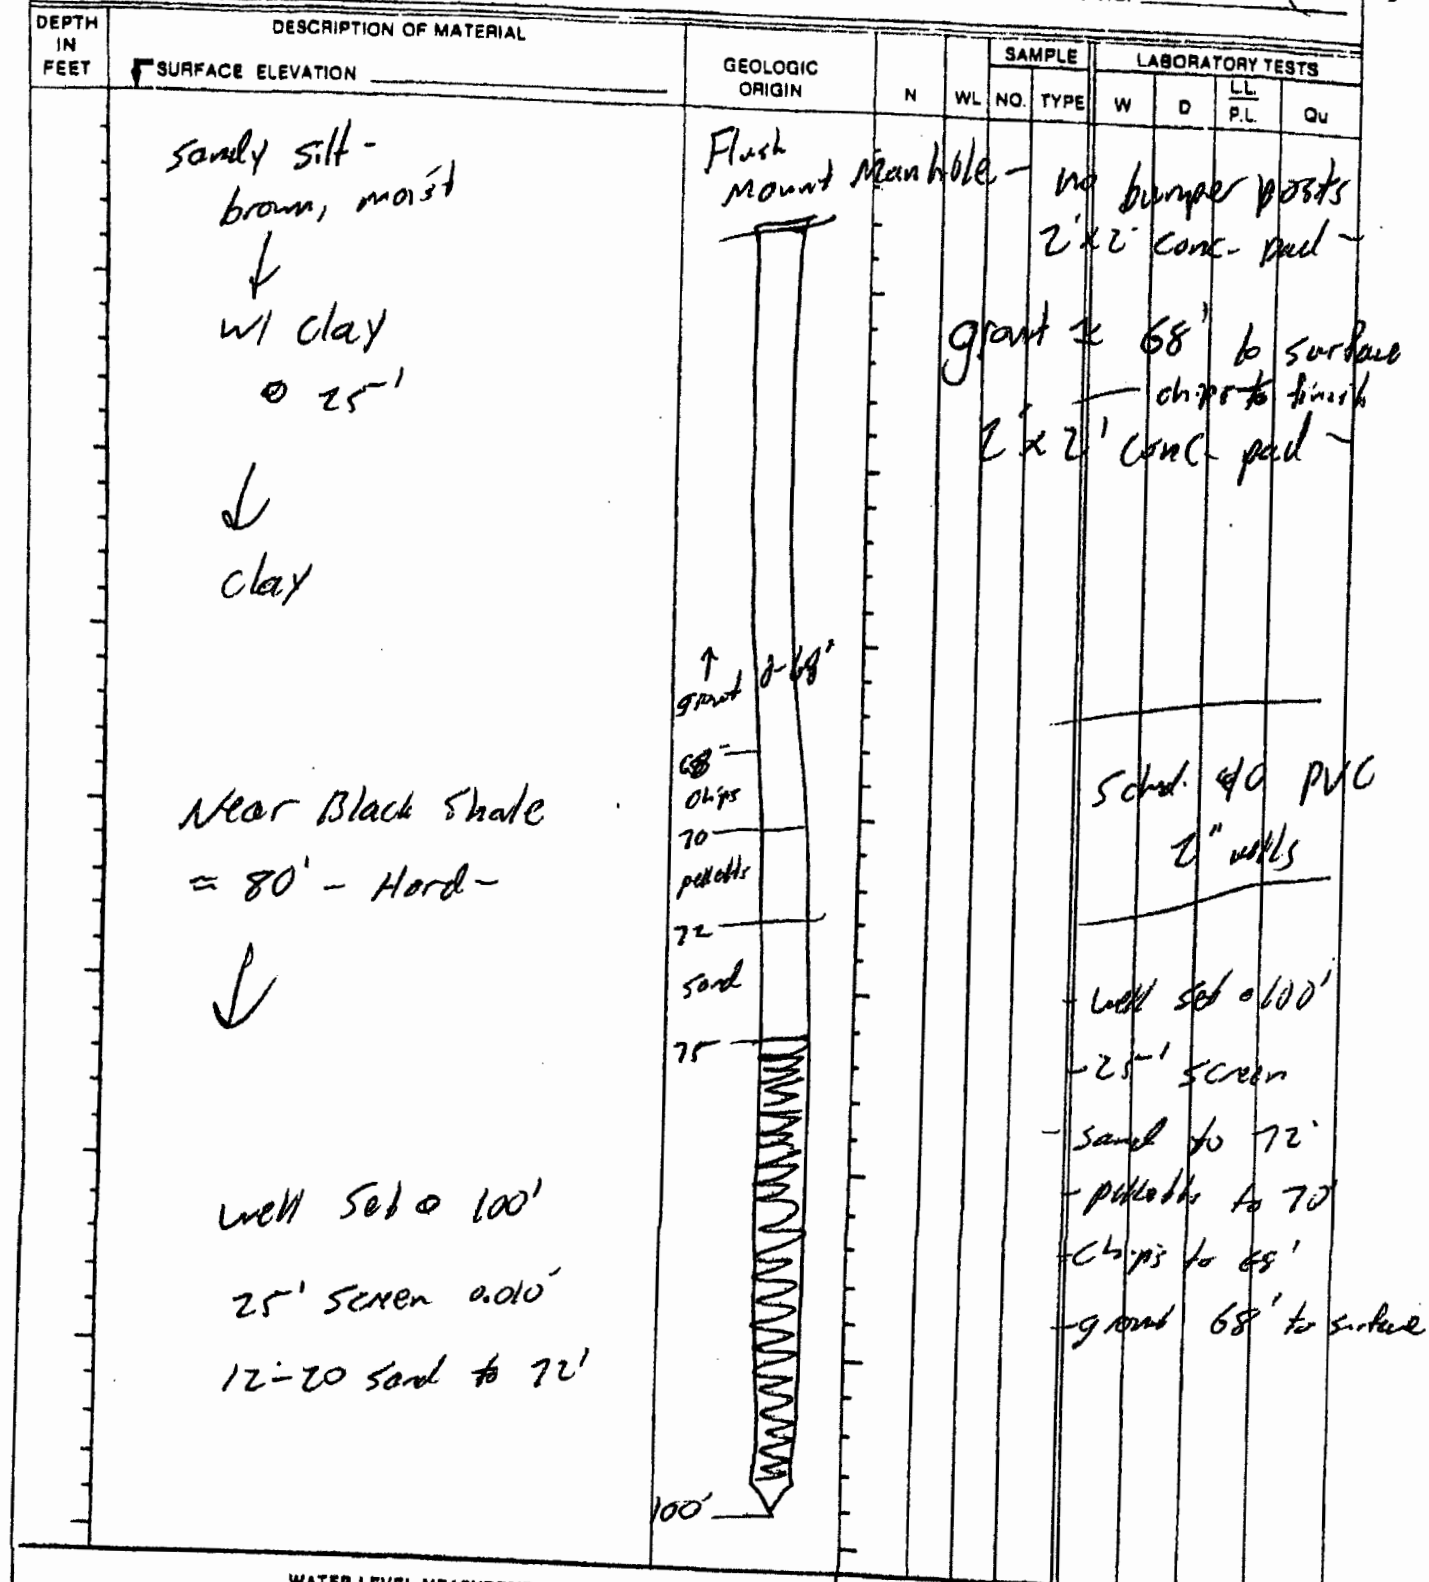 DEPTH IN FEET
DESCRIPTION OF MATERIAL
SURFACE ELEVATION
GEOLOGIC ORIGIN
N
WL
SAMPLE
NO.
TYPE
LABORATORY TESTS
W
D
L.L.
P.L.
Qu
sandy silt -
brown, moist
↓
w/ clay
@ 25'
↓
clay
Near Black Shale
≈ 80' - Hard -
↓
well Set @ 100'
25' Screen 0.010"
12-20 sand to 72'
Flush
Mount Manhole - no bumper posts
2'x2' conc. pad -
grout ≈ 68' to surface
— chips to finish
2'x2' conc. pad -
↑
grout 0-68'
68
chips
70
pelletts
72
sand
75
100'
Sched. 40 PVC
2" wells
- well set @ 100'
- 25' screen
- sand to 72'
- pelletts to 70'
- chips to 68'
- grout 68' to surface